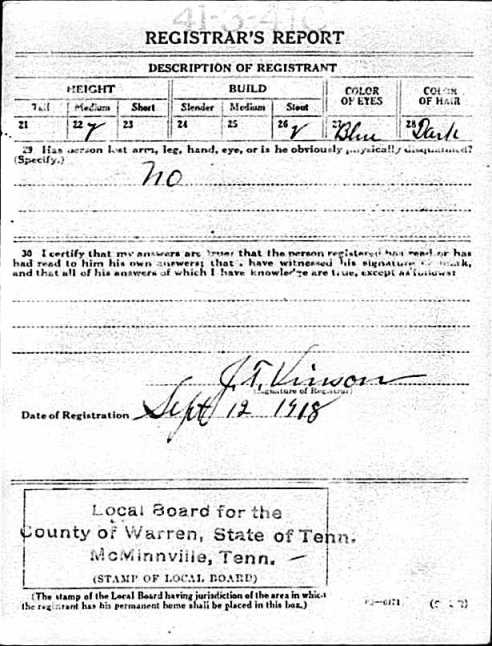 41-3-47 C
REGISTRAR'S REPORT
DESCRIPTION OF REGISTRANT
HEIGHT BUILD COLOR OF EYES COLOR OF HAIR
Tall Medium Short Slender Medium Stout
21 22 ✓ 23 24 25 26 ✓ 27 Blue 28 Dark
29 Has person lost arm, leg, hand, eye, or is he obviously physically disqualified?
(Specify.)
No
30 I certify that my answers are true; that the person registered has read or has
had read to him his own answers; that I have witnessed his signature or mark,
and that all of his answers of which I have knowledge are true, except as follows:
J. T. Vinson
(Signature of Registrar)
Date of Registration Sept 12 1918
Local Board for the
County of Warren, State of Tenn.
McMinnville, Tenn.
(STAMP OF LOCAL BOARD)
(The stamp of the Local Board having jurisdiction of the area in which
the registrant has his permanent home shall be placed in this box.)